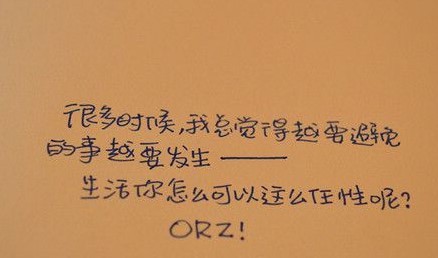 很多时候,我总觉得越要避免
的事越要发生——
生活你怎么可以这么任性呢?
ORZ!